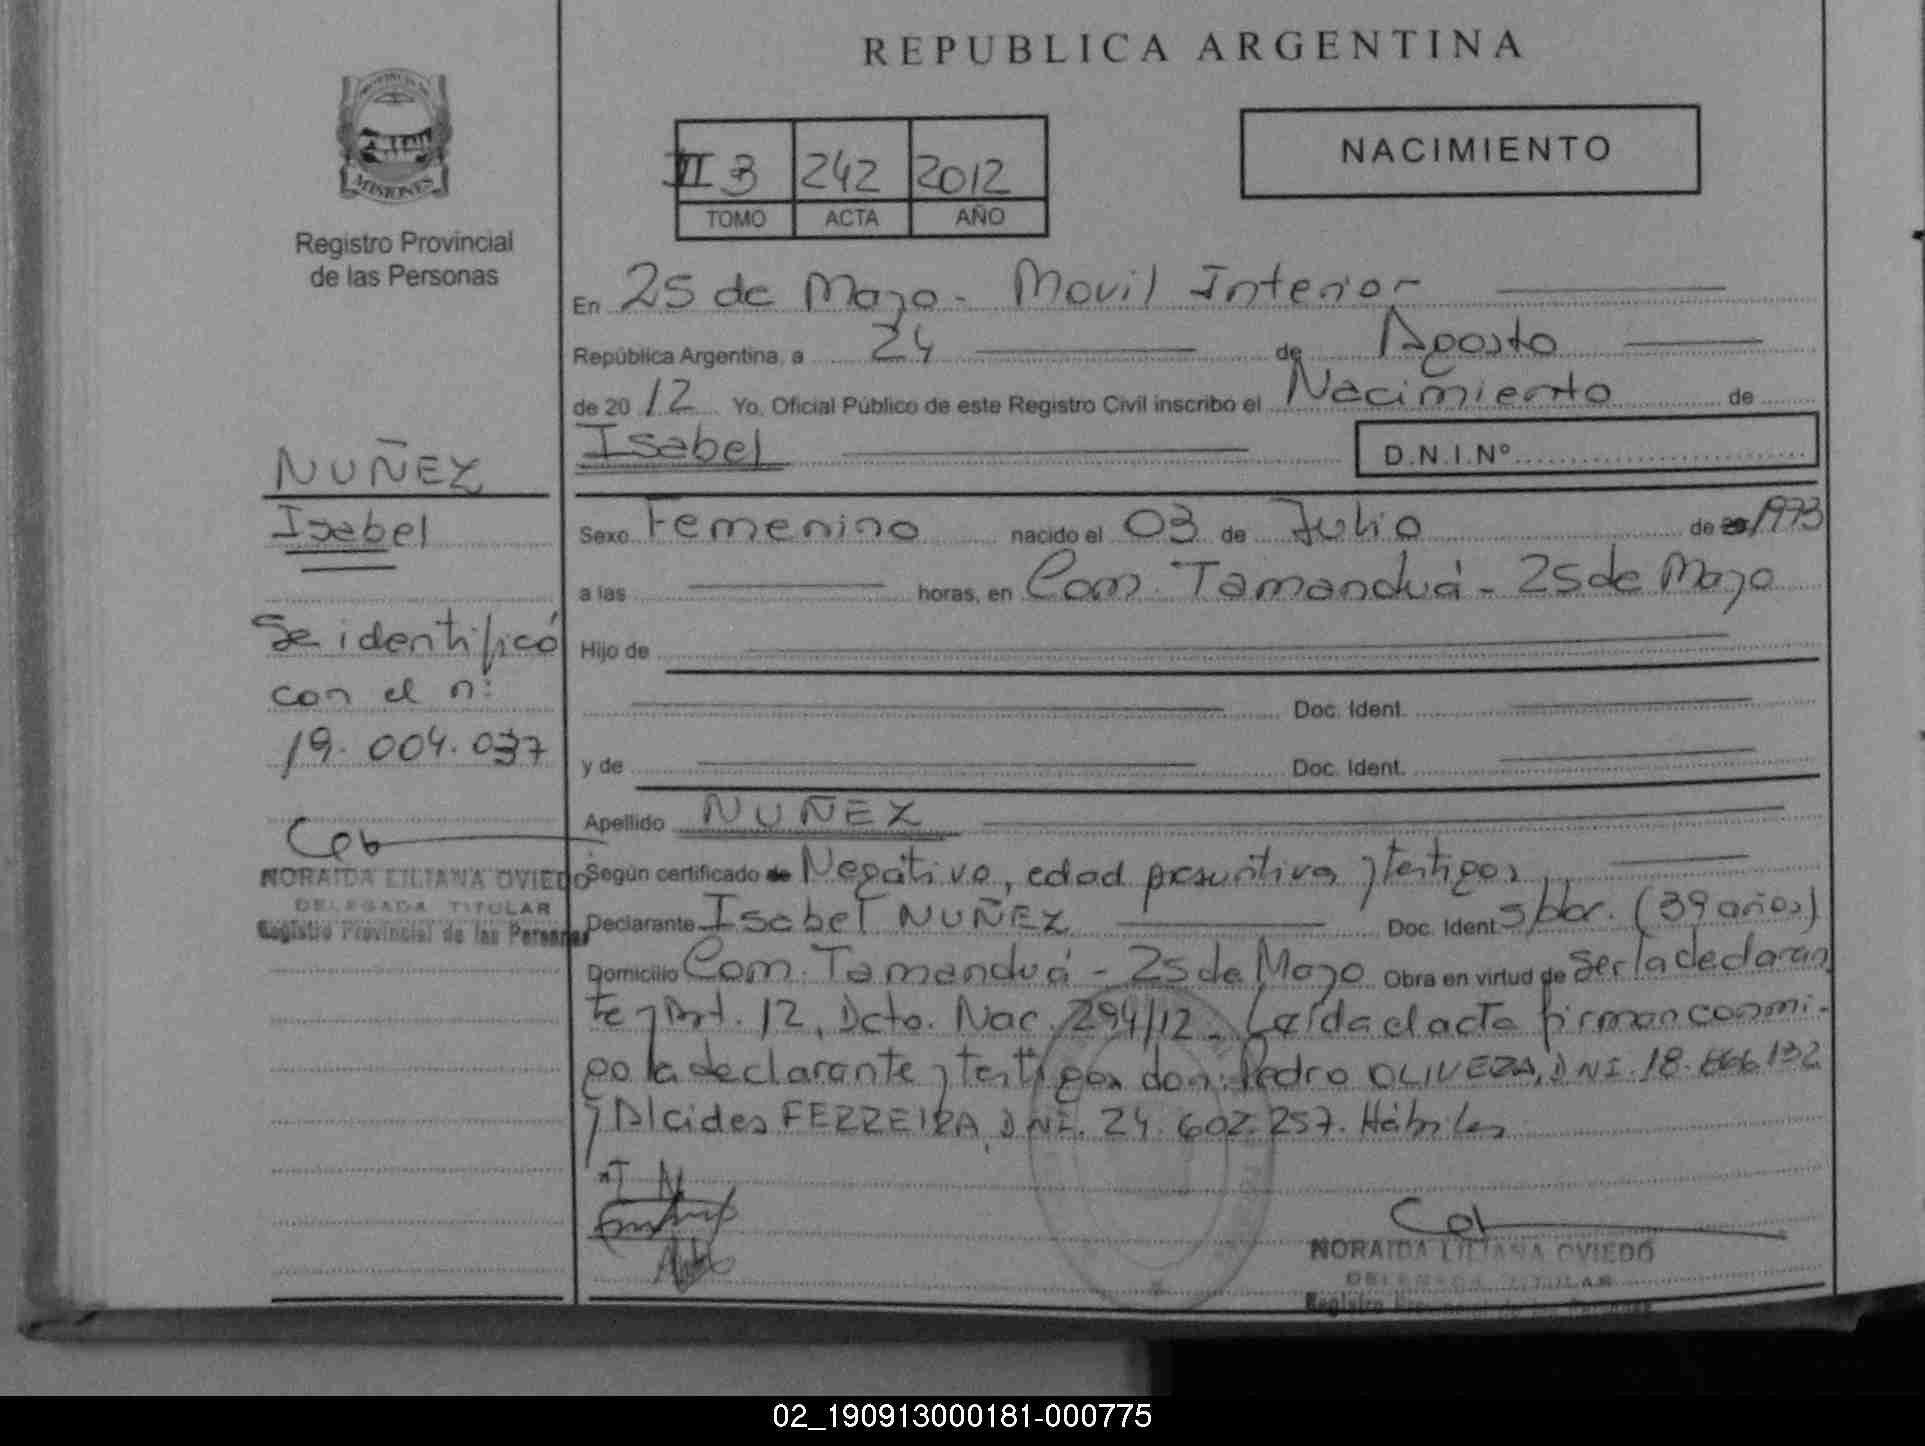 REPUBLICA ARGENTINA
NACIMIENTO
II 3 242 2012
TOMO ACTA AÑO
MISIONES
Registro Provincial
de las Personas
En 25 de Mayo - Movil Interior
República Argentina, a 24 de Agosto
de 20 12 Yo, Oficial Público de este Registro Civil inscribo el Nacimiento de
Isabel D.N.I.Nº
NUÑEZ
Isabel
Se identificó
con el n:
19.004.037
NORAIDA LILIANA OVIEDO
DELEGADA TITULAR
Registro Provincial de las Personas
Sexo Femenino nacido el 03 de Julio de 1973
a las horas, en Com. Tamanduá - 25 de Mayo
Hijo de
Doc. Ident.
y de Doc. Ident.
Apellido NUÑEZ
Según certificado de Negativo, edad presuntiva y testigos
Declarante Isabel NUÑEZ Doc. Ident. s/doc. (39 años)
Domicilio Com. Tamanduá - 25 de Mayo Obra en virtud de ser la declaran
te y Art. 12, Dcto. Nac. 294/12 - Leída el acta firman conmi-
go la declarante y testigos don: Pedro OLIVERA, DNI. 18.866.132
y Alcides FERREIRA, DNI. 24.602.257. Hábiles
I N
NORAIDA LILIANA OVIEDO
DELEGADA TITULAR
Registro Provincial de las Personas
02_190913000181-000775